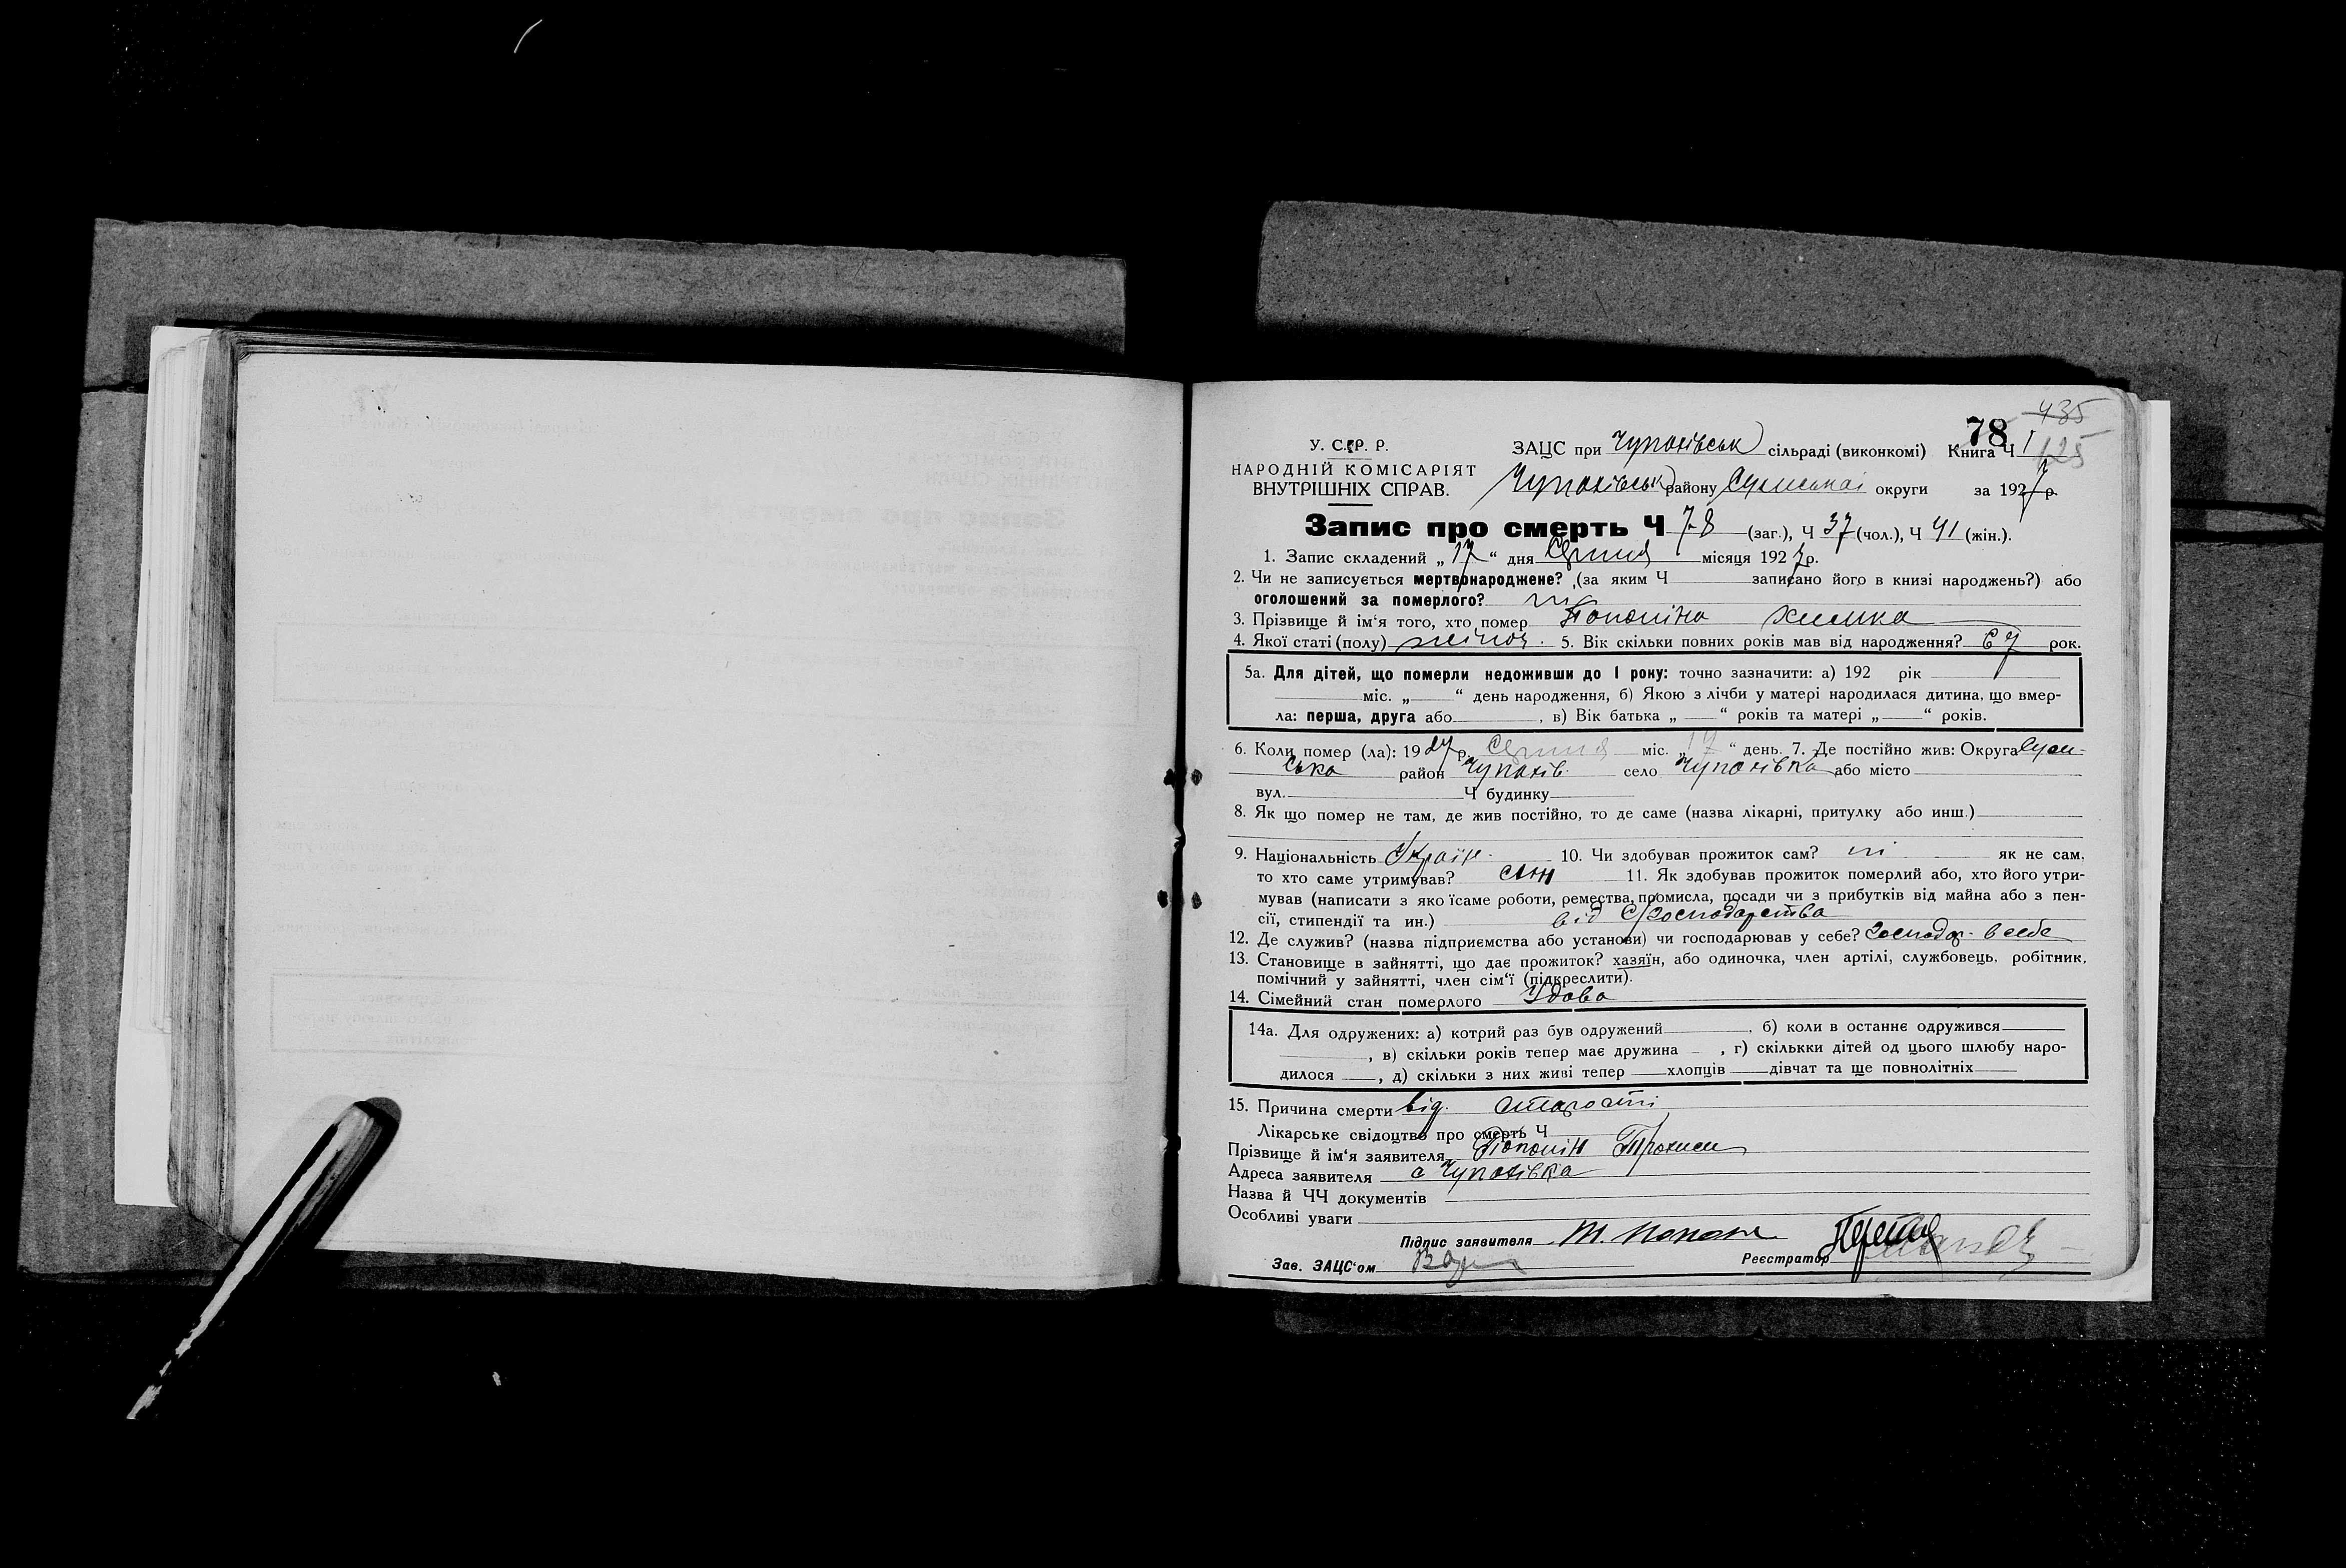 435
78
125
У. С. Р. Р.
НАРОДНІЙ КОМІСАРІЯТ
ВНУТРІШНІХ СПРАВ.
ЗАЦС при Чупахівськ сільраді (виконкомі) Книга Ч 1
Чупахівськ району Сумської округи за 1927 р.
Запис про смерть Ч 78 (заг.), Ч 37 (чол.), Ч 41 (жін.).
1. Запис складений „ 17 “ дня Серпня місяця 1927 р.
2. Чи не записується мертвонароджене? (за яким Ч записано його в книзі народжень?) або
оголошений за померлого? ні
3. Прізвище й ім‘я того, хто помер
4. Якої статі (полу) жіноч. 5. Вік скільки повних років мав від народження? 67 рок.
5а. Для дітей, що померли недоживши до І року: точно зазначити: а) 192 рік
міс. „ “ день народження, б) Якою з лічби у матері народилася дитина, що вмер-
ла: перша, друга або , в) Вік батька „ “ років та матері „ “ років.
6. Коли помер (ла): 1927 р. Серпня міс. „ 17 “ день. 7. Де постійно жив: Округа Сумсь-
ська район Чупахів. село Чупахівка або місто
вул. Ч будинку
8. Як що помер не там, де жив постійно, то де саме (назва лікарні, притулку або инш.)
9. Національність Україн. 10. Чи здобував прожиток сам? ні як не сам,
то хто саме утримував? син 11. Як здобував прожиток померлий або, хто його утри-
мував (написати з якоїсаме роботи, ремества, промисла, посади чи з прибутків від майна або з пен-
сії, стипендії та ин.) від с/господарства
12. Де служив? (назва підприємства або установи) чи господарював у себе? господар. в себе
13. Становище в зайнятті, що дає прожиток? хазяїн, або одиночка, член артілі, службовець, робітник,
помічний у зайнятті, член сім‘ї (підкреслити).
14. Сімейний стан померлого Удова
14а. Для одружених: а) котрий раз був одружений , б) коли в останнє одружився
, в) скільки років тепер має дружина – , г) скількки дітей од цього шлюбу наро-
дилося , д) скільки з них живі тепер хлопців дівчат та ще повнолітніх
15. Причина смерти від старости
Лікарське свідоцтво про смерть Ч
Прізвище й ім‘я заявителя
Адреса заявителя с Чупахівка
Назва й ЧЧ документів
Особливі уваги
Підпис заявителя
Зав. ЗАЦС‘ом Реєстратор